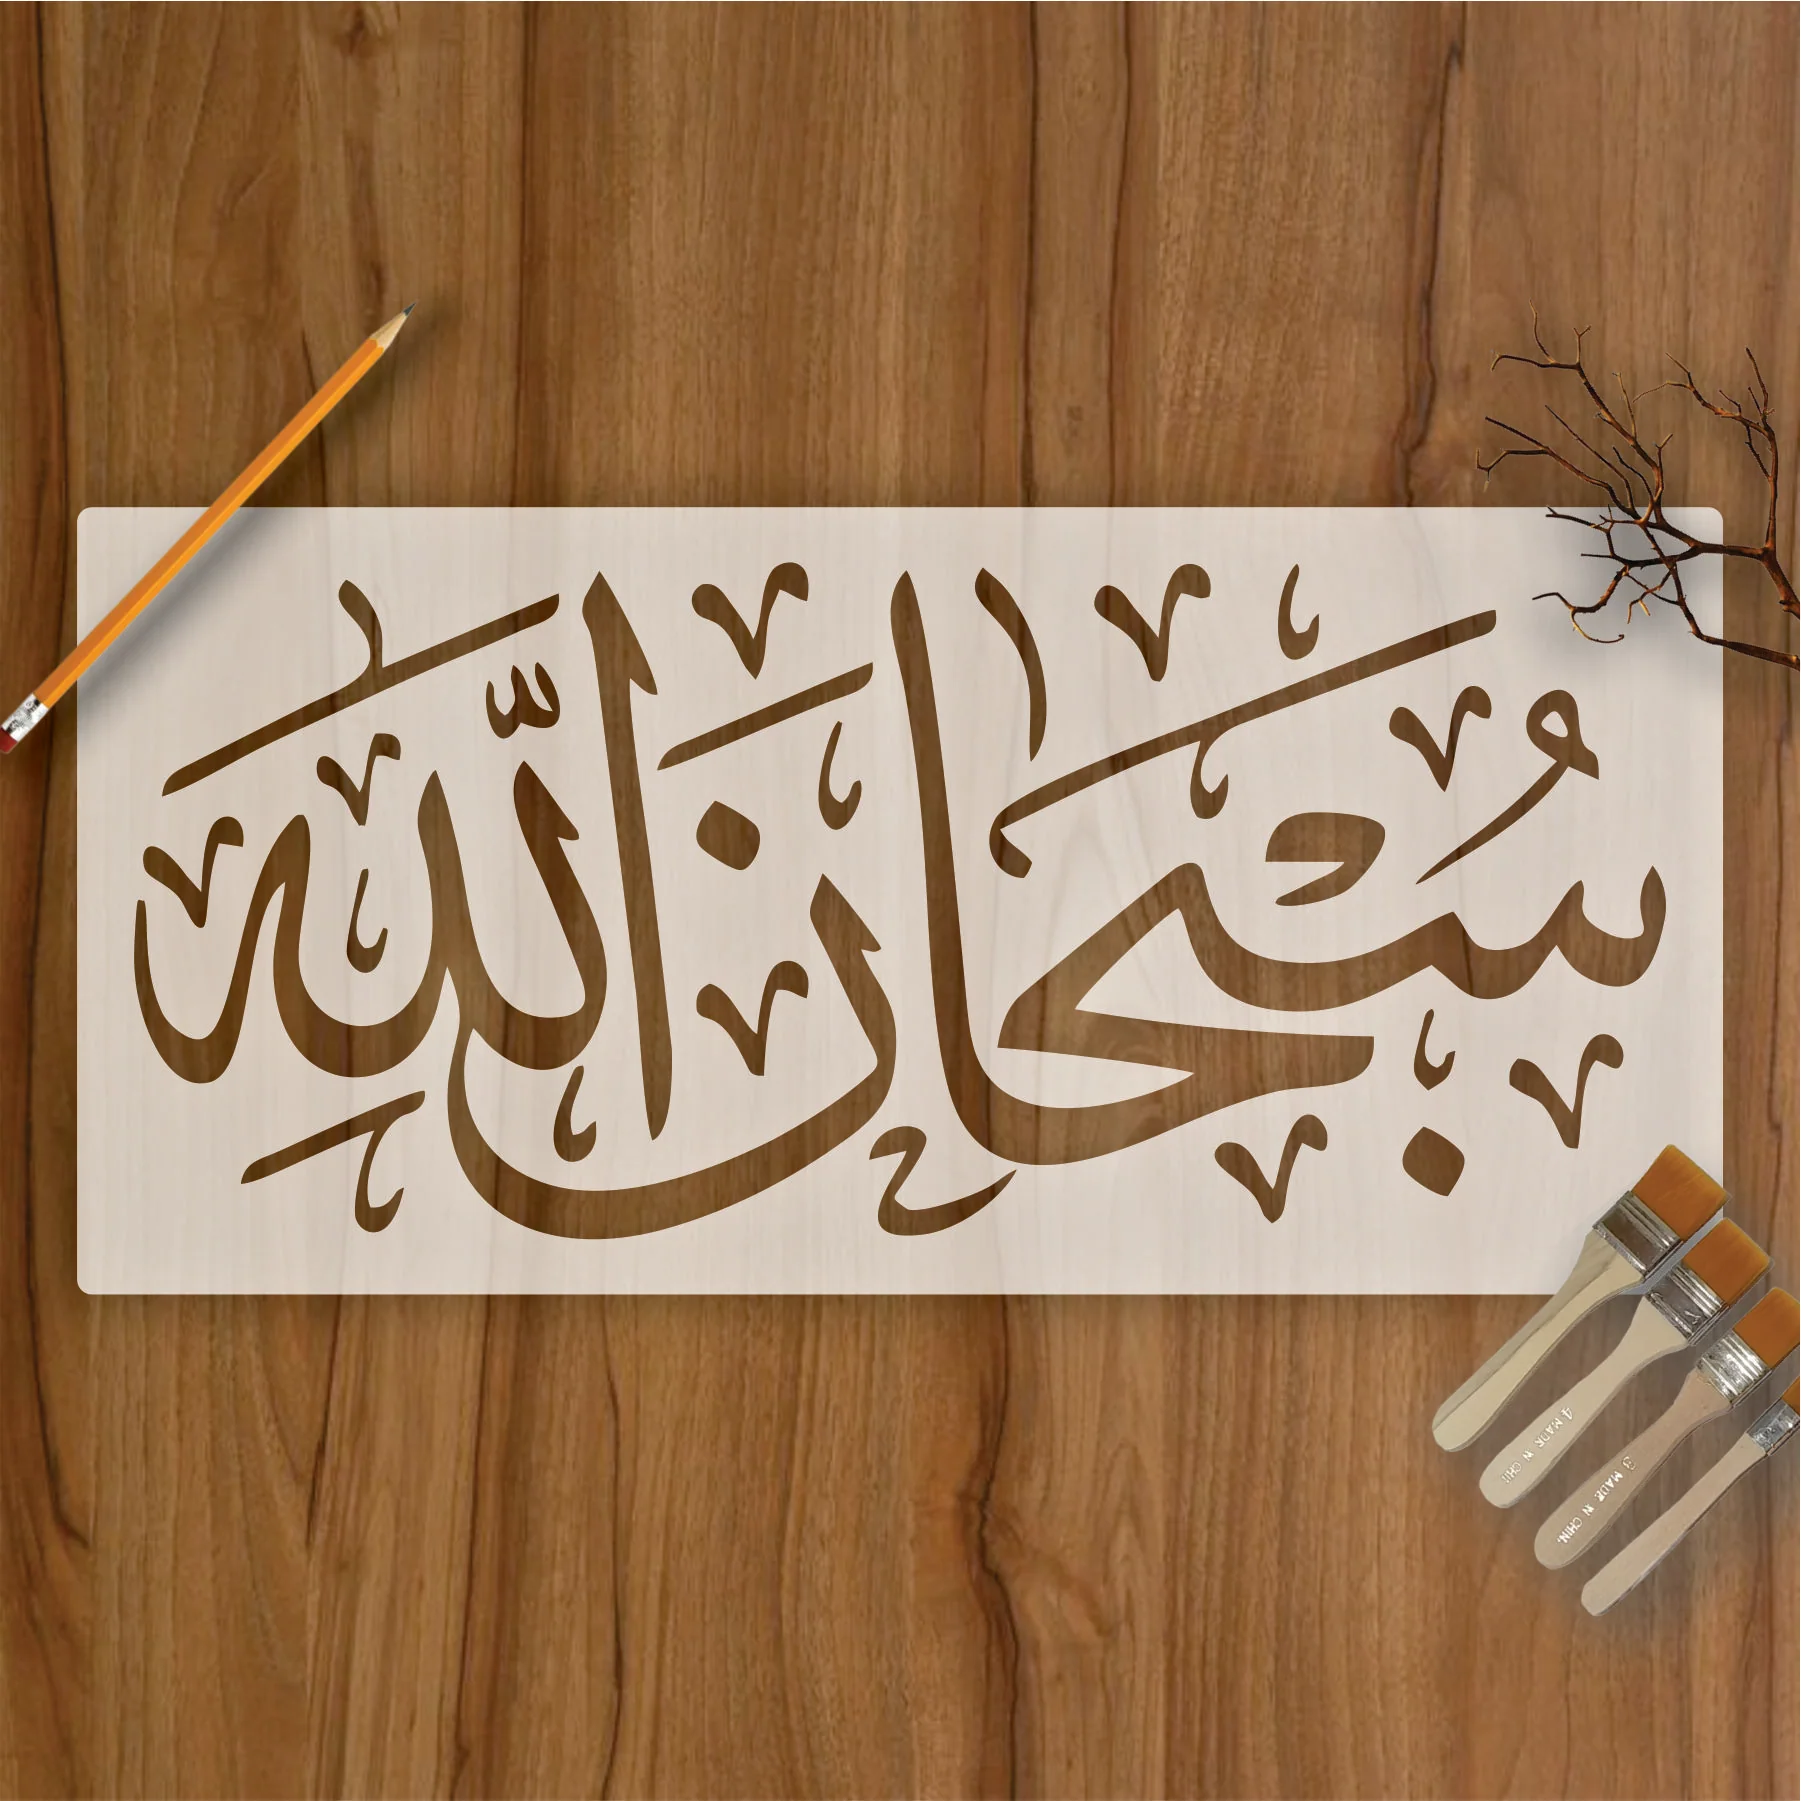 سُبْحَانَ اللّٰهِ
4 MADE IN CHI
3 MADE IN CHIN.